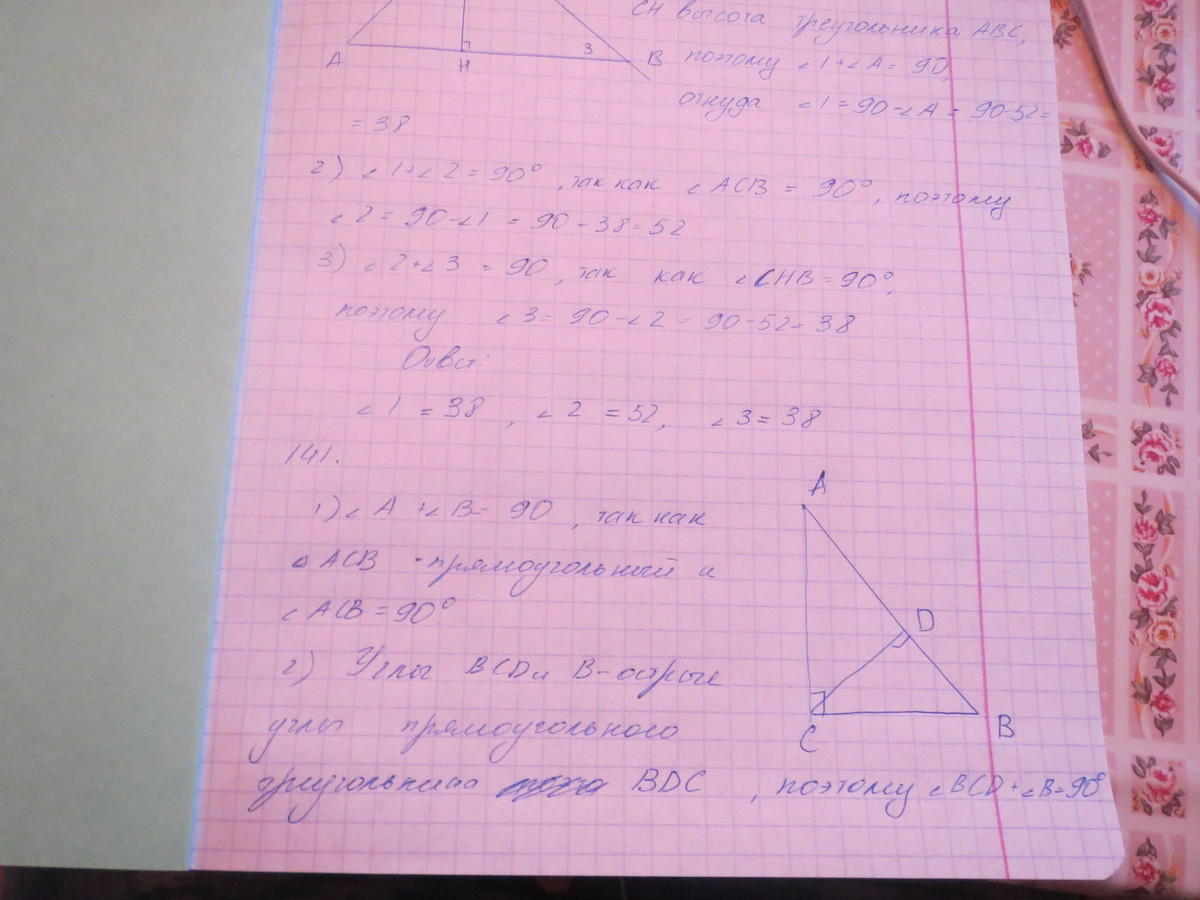 CH высота треугольника ABC,
A H 3 B
поэтому ∠1+∠A = 90,
откуда ∠1 = 90-∠A = 90-52 =
= 38
2) ∠1+∠2 = 90°, так как ∠ACB = 90°, поэтому
∠2 = 90-∠1 = 90-38=52
3) ∠2+∠3 = 90, так как ∠CHB=90°,
поэтому ∠3= 90-∠2 = 90-52= 38
Ответ:
∠1 = 38, ∠2 = 52, ∠3 = 38
141.
A
1) ∠A +∠B= 90, так как
△ACB - прямоугольный и
∠ACB = 90°
D
2) Углы BCD и B-острые
углы прямоугольного
C B
треугольника BDC, поэтому ∠BCD+∠B=90°